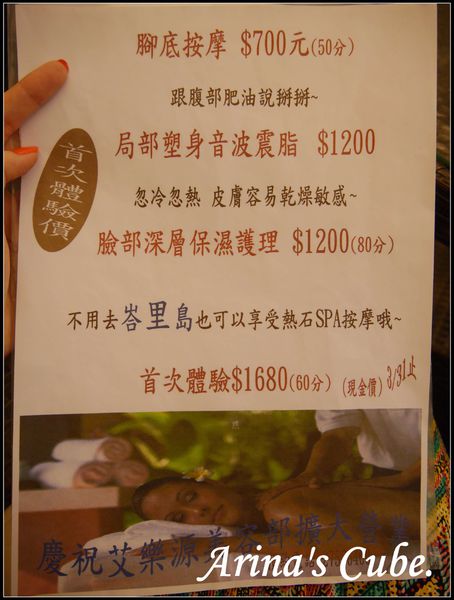 腳底按摩 $700元(50分)
跟腹部肥油說掰掰~
首次體驗價
局部塑身音波震脂 $1200
忽冷忽熱 皮膚容易乾燥敏感~
臉部深層保濕護理 $1200(80分)
不用去峇里島也可以享受熱石SPA按摩哦~
首次體驗$1680(60分) (現金價) 3/31止
慶祝艾樂源美容部擴大營業
Arina's Cube.